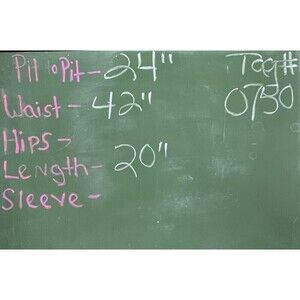 Pit to Pit - 24" Tag#
Waist - 42" 0730
Hips -
Length - 20"
Sleeve -